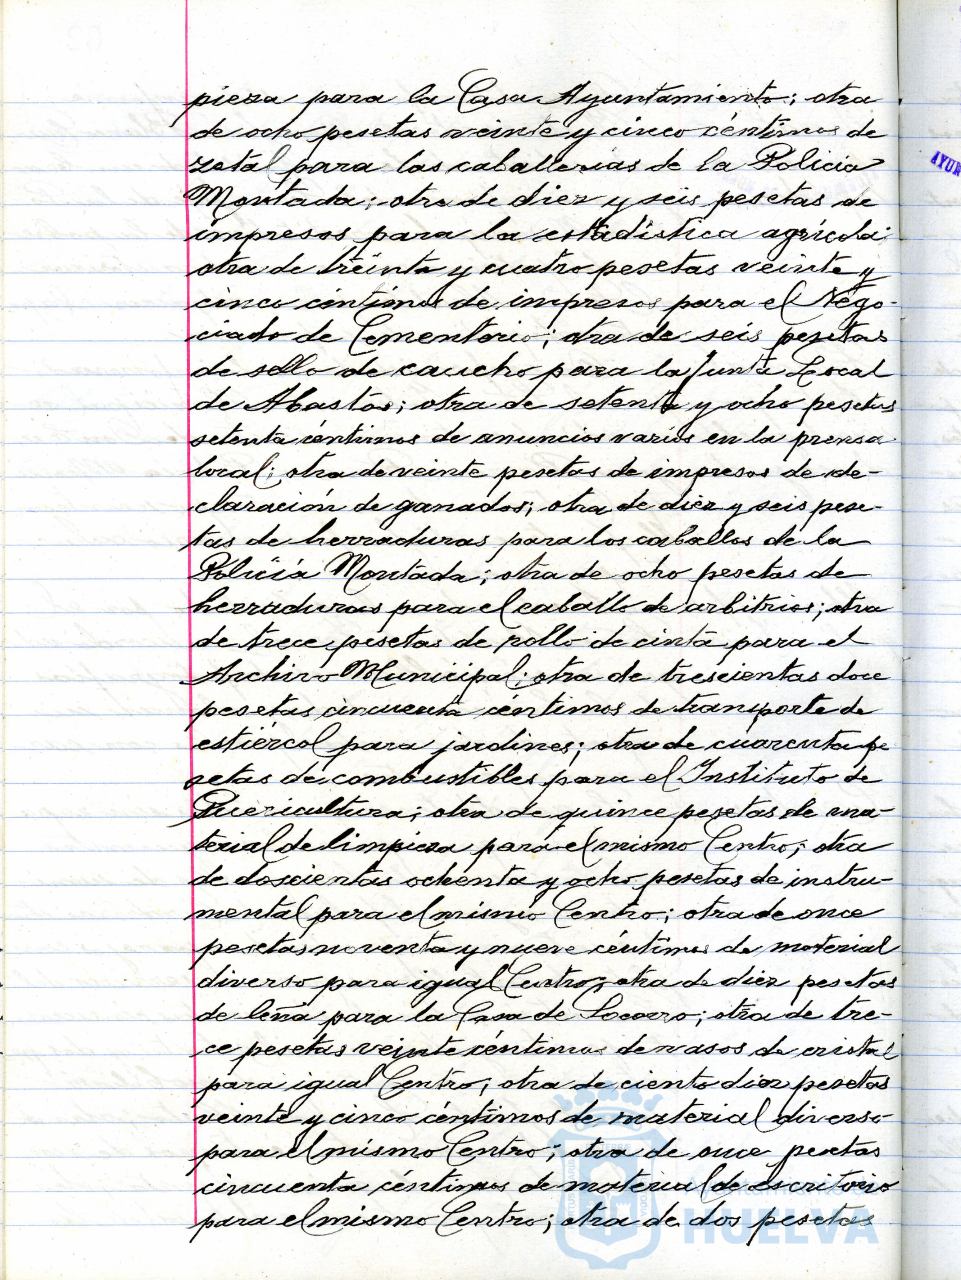 pieza para la Casa Ayuntamiento; otra
de ocho pesetas veinte y cinco céntimos de
zotal para las caballerias de la Policia
Montada; otra de diez y seis pesetas de
impresos para la estadística agrícola;
otra de treinta y cuatro pesetas veinte y
cinco céntimos de impresos para el Nego-
ciado de Cementerio; otra de seis pesetas
de sello de caucho para la Junta Local
de Abastos; otra de setenta y ocho pesetas
setenta céntimos de anuncios varios en la prensa
local; otra de veinte pesetas de impresos de de-
claración de ganados; otra de diez y seis pese-
tas de herraduras para los caballos de la
Policía Montada; otra de ocho pesetas de
herraduras para el caballo de arbitrios; otra
de trece pesetas de rollo de cinta para el
Archivo Municipal; otra de trescientas doce
pesetas cincuenta céntimos de transporte de
estiércol para jardines; otra de cuarenta pe
setas de combustibles para el Instituto de
Puericultura; otra de quince pesetas de ma-
terial de limpieza para el mismo Centro; otra
de doscientas ochenta y ocho pesetas de instru-
mental para el mismo Centro; otra de once
pesetas noventa y nueve céntimos de material
diverso para igual Centro; otra de diez pesetas
de leña para la Casa de Socorro; otra de tre-
ce pesetas veinte céntimos de vasos de cristal
para igual Centro; otra de ciento diez pesetas
veinte y cinco céntimos de material diverso
para el mismo Centro; otra de once pesetas
cincuenta céntimos de material de escritorio
para el mismo Centro; otra de dos pesetas
HUELVA